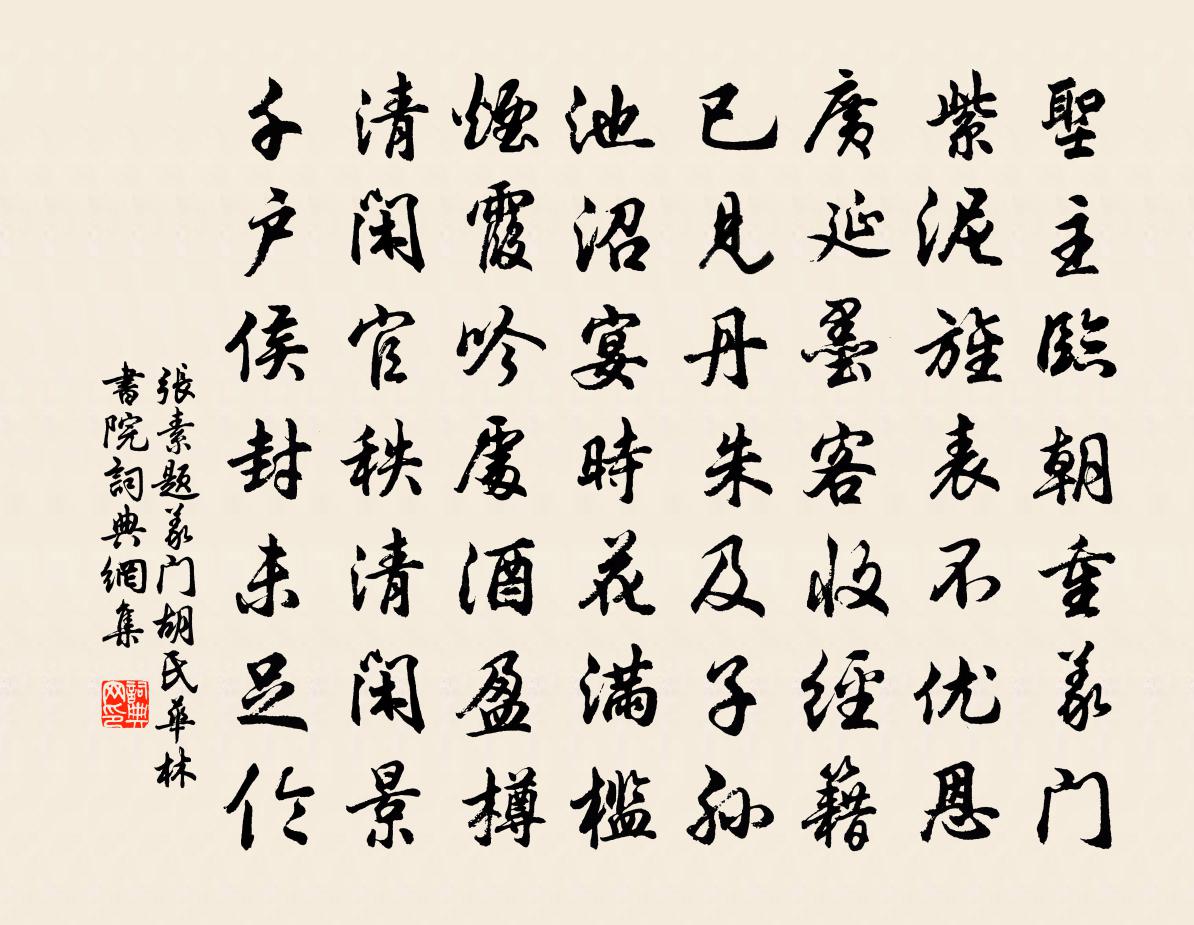 聖主臨朝重義門
紫泥旌表不优恩
廣延墨客收經籍
已見丹朱及子孫
池沼宴時花滿檻
煙霞吟處酒盈樽
清閑官秩清閑景
千户侯封未足伦
張素題義门胡氏華林
書院詞典網集
詞典
网印